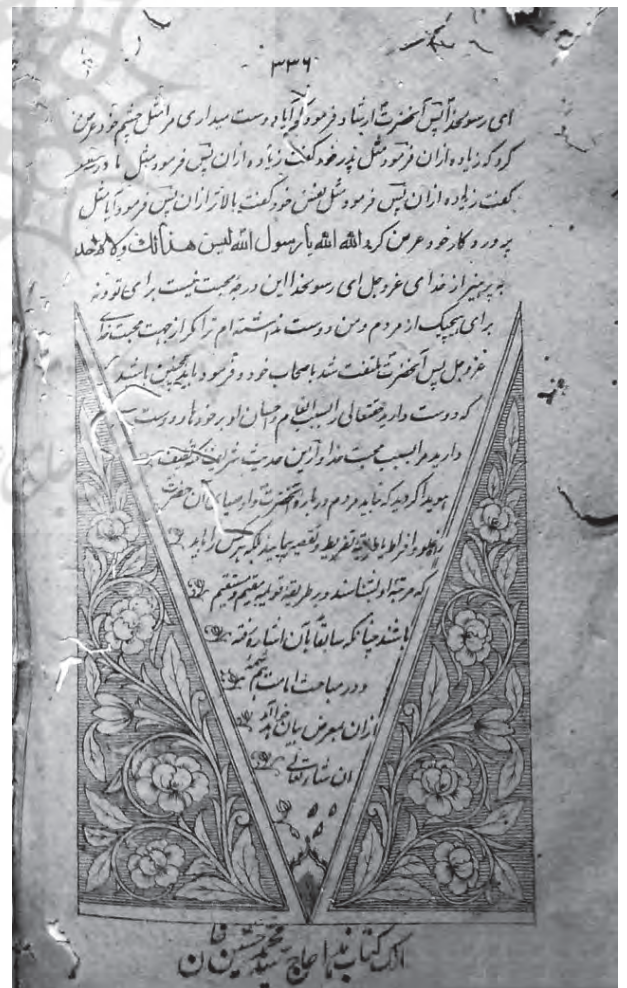 ۳۳۶
ای رسولخدا پس آنحضرت ارشاد فرمود که آیا دوست میداری مرا مثل چشم خود عرض
کرد که زیاده ازان فرمود مثل پدر خود گفت زیاده ازان پس فرمود مثل مادر
گفت زیاده ازان پس فرمود مثل نفس خود گفت بالاتر ازان پس فرمود آیا مثل
پروردگار خود عرض کرد الله الله یا رسول الله لیس هذا لك ولا لاحد
به پرهیز از خدای عزوجل ای رسولخدا این درجۀ محبت نیست برای تو و نه
برای هیچیک از مردم و من دوست نداشته‌ام ترا مگر از جهت محبت خدای
عزوجل پس آنحضرت ملتفت شد باصحاب خود و فرمود باید همچنین باشید
که دوست دارید حقتعالی را بسبب انعام و احسان او بر خودها و دوست
دارید مرا بسبب محبت خدا و ازین حدیث شریف
هویدا گردید که نباید مردم درباره آنحضرت و اوصیای آن حضرت
راه غلو و افراط یا طریقه تفریط و تقصیر پیمایند بلکه هر کس را باید
که مرتبه او بشناسند و بر طریقه قویمه مقیم و مستقیم
باشند چنانکه سابقا بآن اشاره رفته
و در مباحث امامت هم شمۀ
ازان بمعرض بیان خواهد آمد
ان شاء الله تعالی
مالک کتاب هذا حاج سید محمد حسین خان